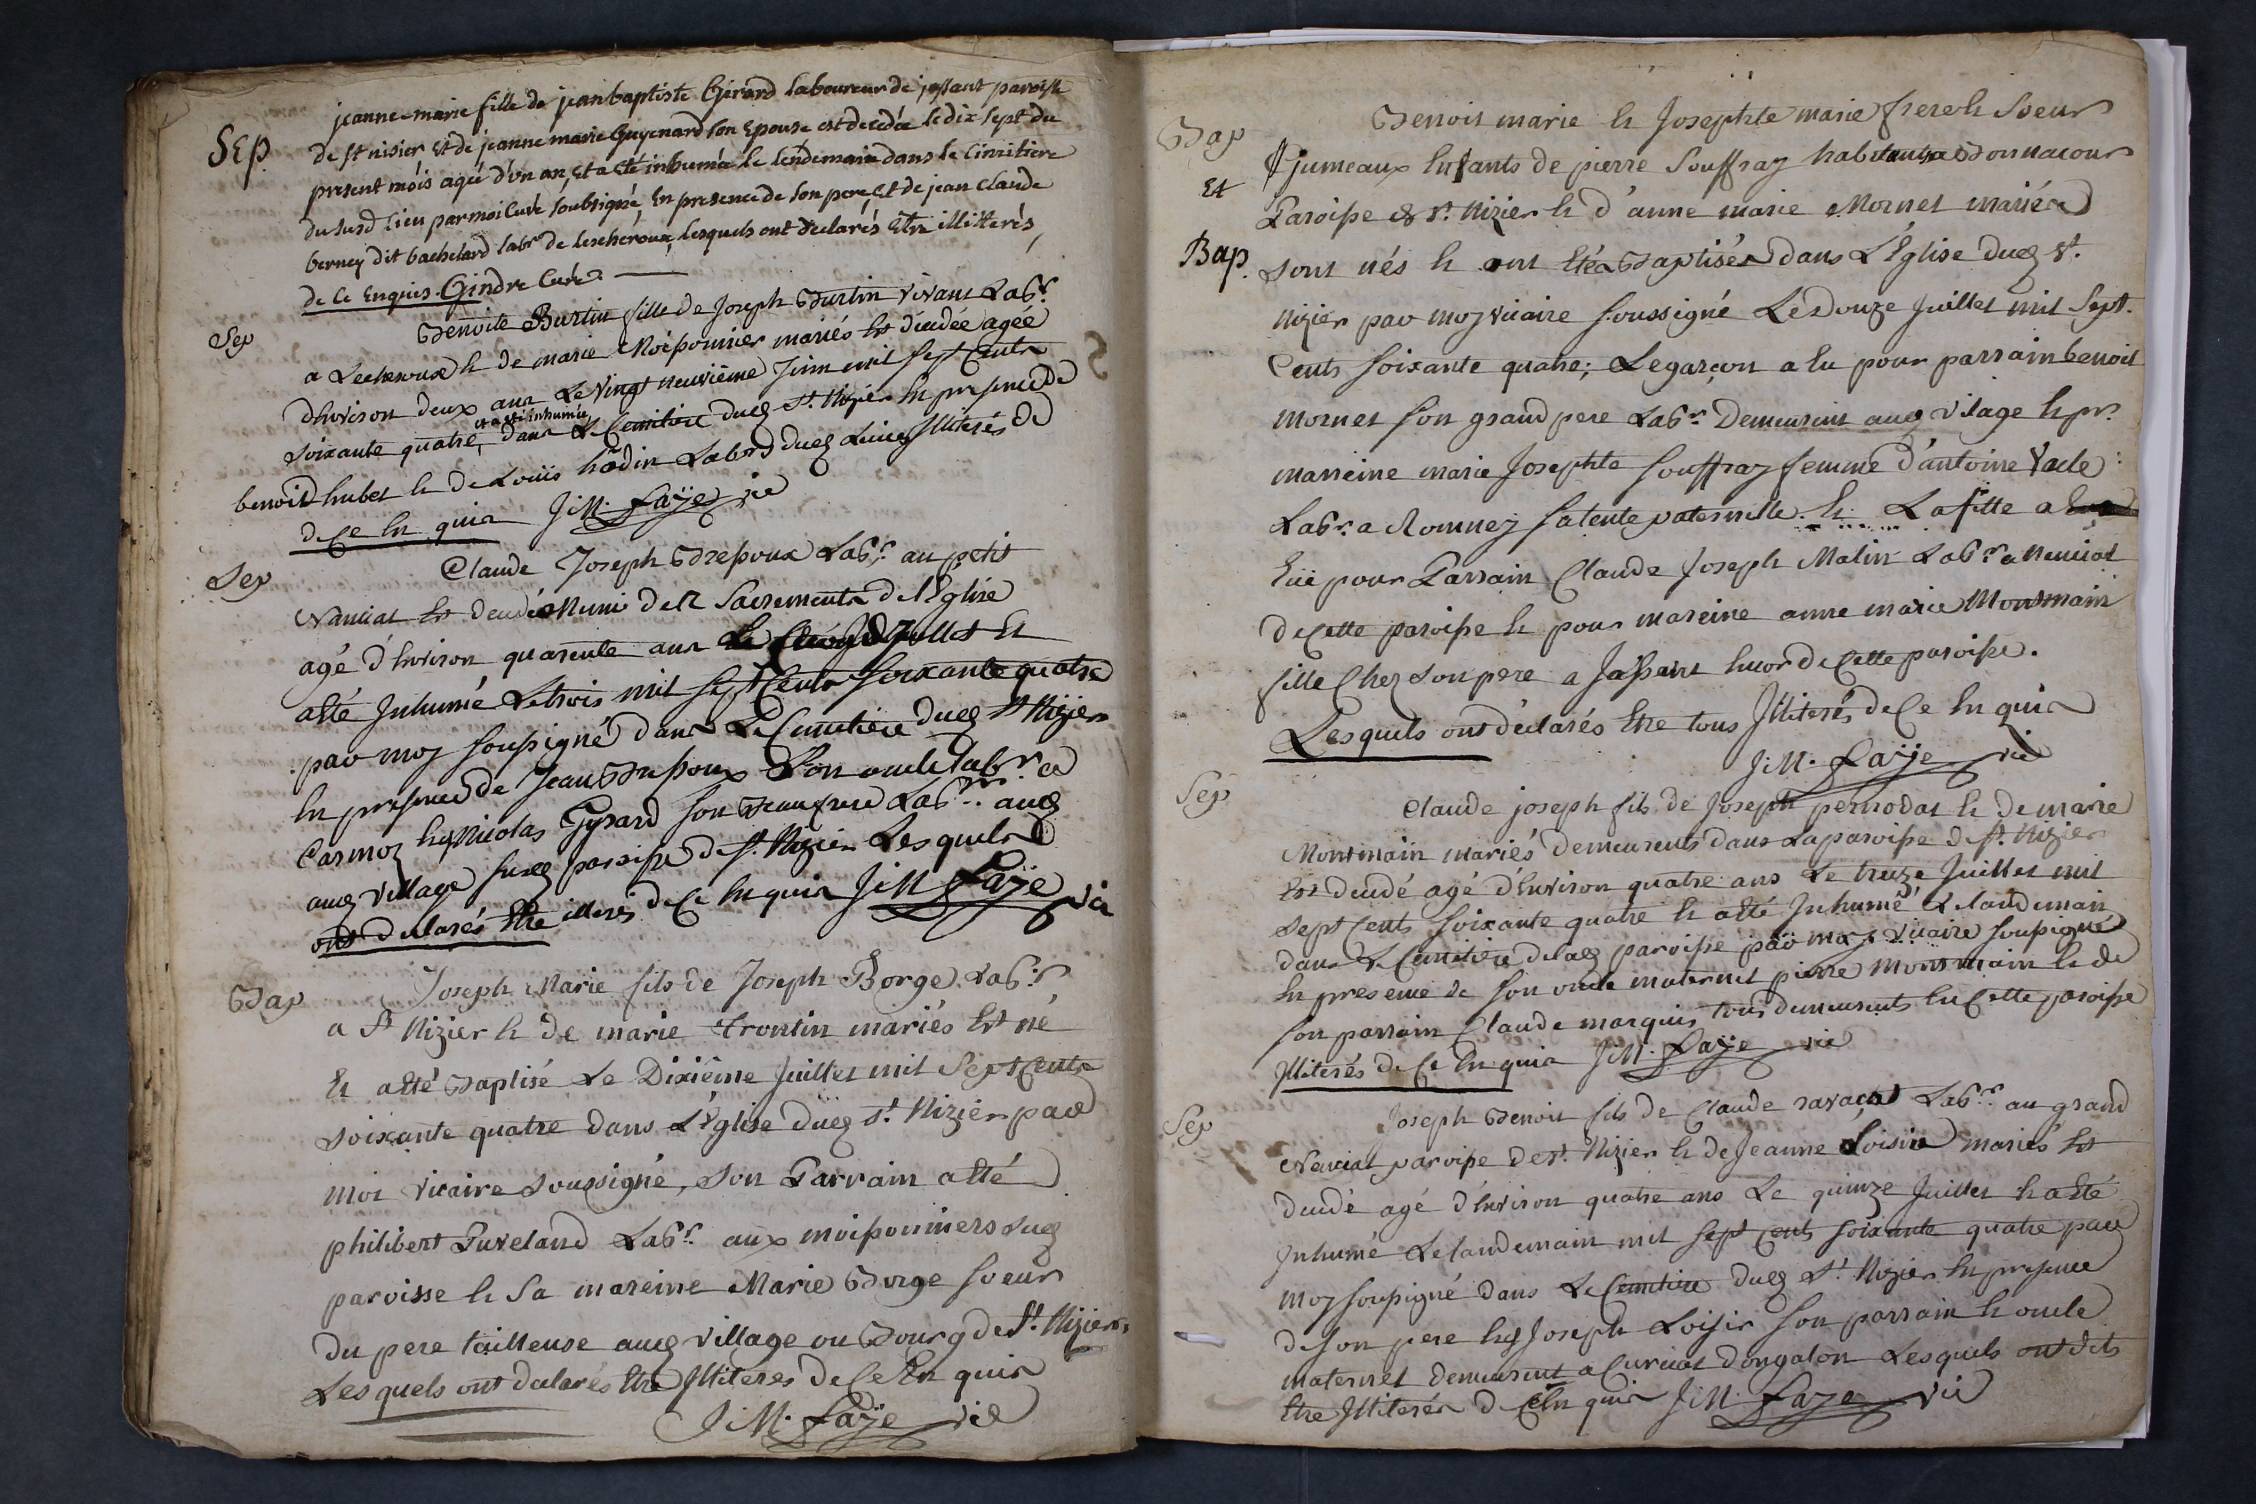 jeanne-marie fille de jean baptiste Gerard laboureur de jassant paroisse
Sep. de st nisier et de jeanne marie Guyenard son Epouse est decedée le dix sept du
present mois agée d'un an, et a eté inhumée le lendemain dans le cimitiere
du susd lieu par moi Curé soubsigné, En presence de son pere, Et de jean claude
berney dit bachelard labr de lescheroux, lesquels ont declarés Etre illitterés,
de ce Enquis. Gindre Curé
Sep Benoite Burtin fille de Joseph Burtin vivant Labr.
a Lecheroux & de marie Moissonnier mariés Est décédée agée
d'environ deux ans Le vingt neuvième Juin mil sept Cents
soixante quatre, et a été inhumée dans Le Cemitiere dud St. Nizier En presence de
benoit hubet & de Louis Labrd dud Lieu Illiterés de
de Ce En quis J:M. Faÿe vic
Sep Claude Joseph Bressoux Labr. au petit
Nanciat Est decedé Muni des Sacrements de l'Eglise
agé d'Environ quarente ans Le Juillet Et
a Eté Inhumé Le trois mil sept Cents soixante quatre
par moy soussigné dans Le Cemitiere dud St Nizier
En presence de Jean Bressoux Son oncle labr. a
Carmoz Nicolas Gyrard son Beaufrere Labr. aud
aud village susd paroisse de St. Nizier Lesquels
ont declarés Etre illiteres de Ce En quis J:M Faÿe vic
Bap Joseph Marie fils de Joseph Borge Labr.
a St Nizier & de marie Trontin mariés Est né
Et a Eté Baptisé Le Dixième Juillet mil Sept Cents
soixante quatre dans L'Eglise dud St. Nizier par
moi vicaire soussigné, son Parrain a Eté
philibert Puveland Labr. aux moissonniers dud
paroisse & Sa mareine Marie Borge soeur
du pere tailleuse aud village ou Bourg de St. Nizier
Lesquels ont declarés Etre Illiteres de Ce En quis
J:M. Faÿe vic
Bap Benoit marie & Josephte marie frere & Soeur
Et jumeaux Enfants de pierre Souffray habitants a Donnacour
Paroisse de St. Nizier & d'anne marie Mornet mariés
Bap. sont nés & ont Etés Baptisés dans L'Eglise dud St.
Nizier par moy vicaire soussigné Le Douze Juillet mil Sept
Cents soixante quatre; Le garçon a Eu pour parrain benoit
Mornet son grand pere Labr. Demeurant aud vilage & pr.
marreine marie Josephte souffray femme d'antoine Vacle
Labr. a Romney sa tente paternelle. & La fille a
Eüe pour Parrain Claude Joseph Malin Labr. a Nanciat
de Cette paroisse & pour mareine anne marie Montmain
fille Chez son pere a Jassant de Cette paroisse.
Lesquels ont déclarés Etre tous Illiterés de Ce En quis
J:M. Faÿe vic
Sep Claude joseph fils de Joseph pernodat & de marie
Montmain mariés demeurents dans la paroisse de St. Nizier
Est decedé agé d'Environ quatre ans Le treize Juillet mil
sept Cents soixante quatre & a Eté Inhumé Le landemain
dans Le Cemitiere de lad paroisse par moy vicaire soussigné
En presence de son oncle maternel pierre Montmain & de
son parrain Claude marquis tous demeurents En Cette paroisse
Illiterés de Ce En quis J:M. Faÿe vic
Sep Joseph Benoit fils de Claude ravacat Labr. au grand
Nanciat paroisse de st. Nizier & de Jeanne Loisir mariés Est
decedé agé d'Environ quatre ans Le quinze Juillet & a Eté
Inhumé Le landemain mil sept Cents soixante quatre par
moy soussigné dans Le Cemitiere dud St. Nizier En presence
de son pere Joseph Loisir son parrain & oncle
maternel demeurent a Curciat dongalon Lesquels ont dits
Etre Illiterés de Ce En quis J:M. Faÿe vic